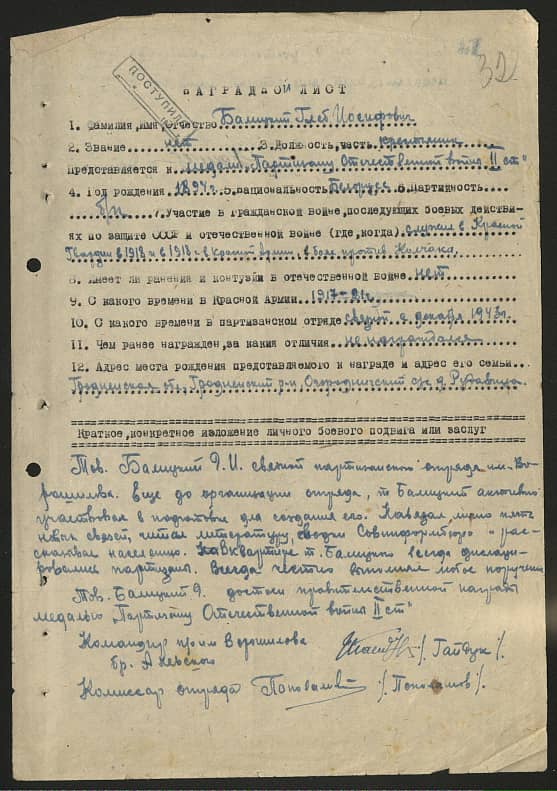 32
ПОСТУПИЛ
НАГРАДНОЙ ЛИСТ
1. Фамилия, имя, отчество Балицкий Глеб Иосифович
2. Звание нет 3. Должность, часть крестьянин
Представляется к медали „Партизану Отечественной войны II ст"
4. Год рождения 1894г. 5. Национальность Белорусс 6. Партийность
б/п 7. Участие в гражданской войне, последующих боевых действи-
ях по защите СССР и отечественной войне (где, когда) служил в Красной
Гвардии в 1918 и в 1918 г в Красной армии, в боях против Колчака.
8. Имеет ли ранения и контузии в отечественной войне нет
9. С какого времени в Красной Армии 1917-21г.
10. С какого времени в партизанском отряде связной с декабря 1943г.
11. Чем ранее награжден, за какия отличия не награждался
12. Адрес места рождения представляемого к награде и адрес его семьи
Гродненская обл. Гродненский р-н, Огородничский с/с д. Рудавица
Краткое, конкретное изложение личного боевого подвига или заслуг
Тов. Балицкий И. связной партизанского отряда им. Во-
рошилова. Еще до организации отряда, т Балицкий активно
участвовал в подготовке для создания его. Навязал
связей, читал литературу, сводки Совинформбюро и рас-
сказывал населению. На квартире т. Балицкого всегда
партизаны. Всегда честно выполнял любое поручение
Тов. Балицкий достоин правительственной награды
медалью „Партизану Отечественной войны II ст"
Командир п/о им Ворошилова
бр. А Невского /Гайдук/.
Комиссар отряда